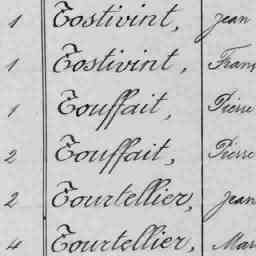 1 Tostivint, Jean
1 Tostivint, Frans
1 Touffait, Pierre
2 Touffait, Pierre
2 Tourtellier, Jean
4 Tourtellier, Mar